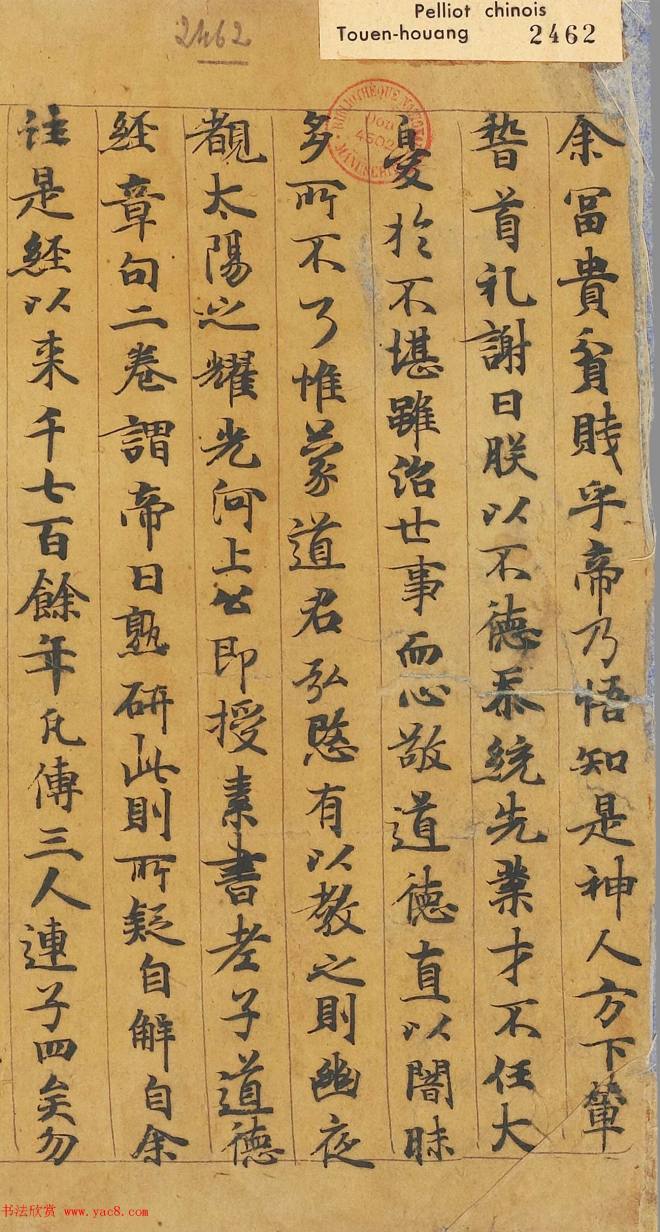 2462
Pelliot chinois
Touen-houang 2462
余冨貴貧賎乎帝乃悟知是神人方下輦
䭫首礼謝曰朕以不德忝統先業才不任大
憂於不堪雖治世事而心敬道德直以闇昧
多所不了惟蒙道君弘愍有以教之則幽夜
覩太陽之耀光河上公即授素書老子道德
經章句二卷謂帝曰熟研此則所疑自解自余
注是經以来千七百餘年凡傳三人連子四矣勿
BIBLIOTHÈQUE NATIONALE
MANUSCRITS
Don 4502
书法欣赏 www.yac8.com